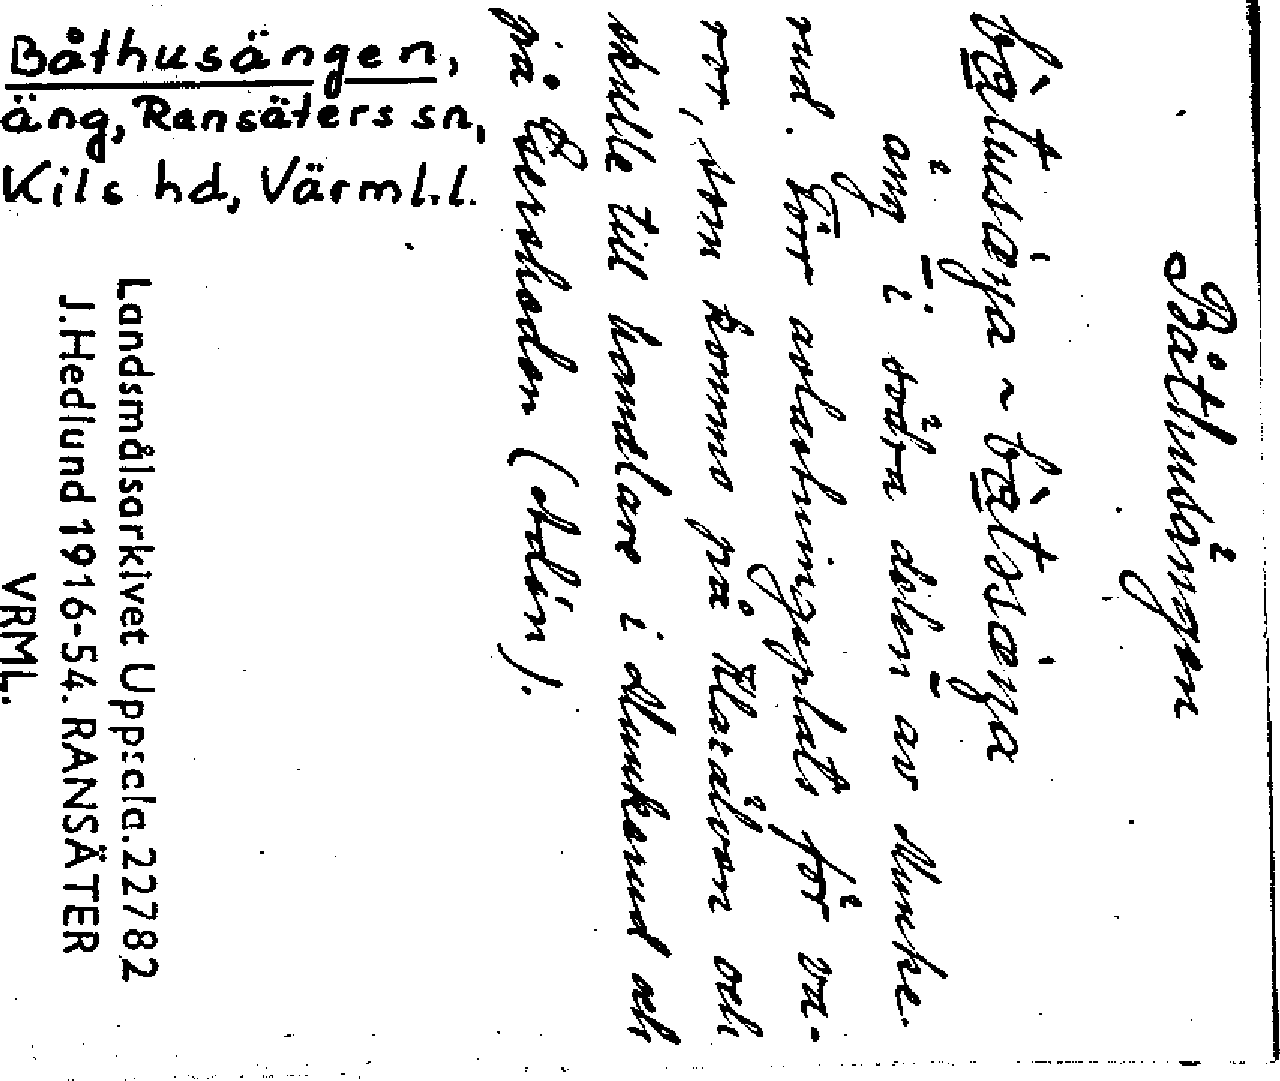 Båthusängen,
äng, Ransäters sn,
Kils hd, Värml.l.
Båthusängen
båtusäŋa ~ båtssäŋa
äng i södra delen av Munke-
rud. Förr avlastningsplats för va-
ror, som kommo på Klarälven och
skulle till handlare i Munkerud och
på
Landsmålsarkivet Uppsala. 22782
J. Hedlund 1916-54. RANSÄTER
VRML.